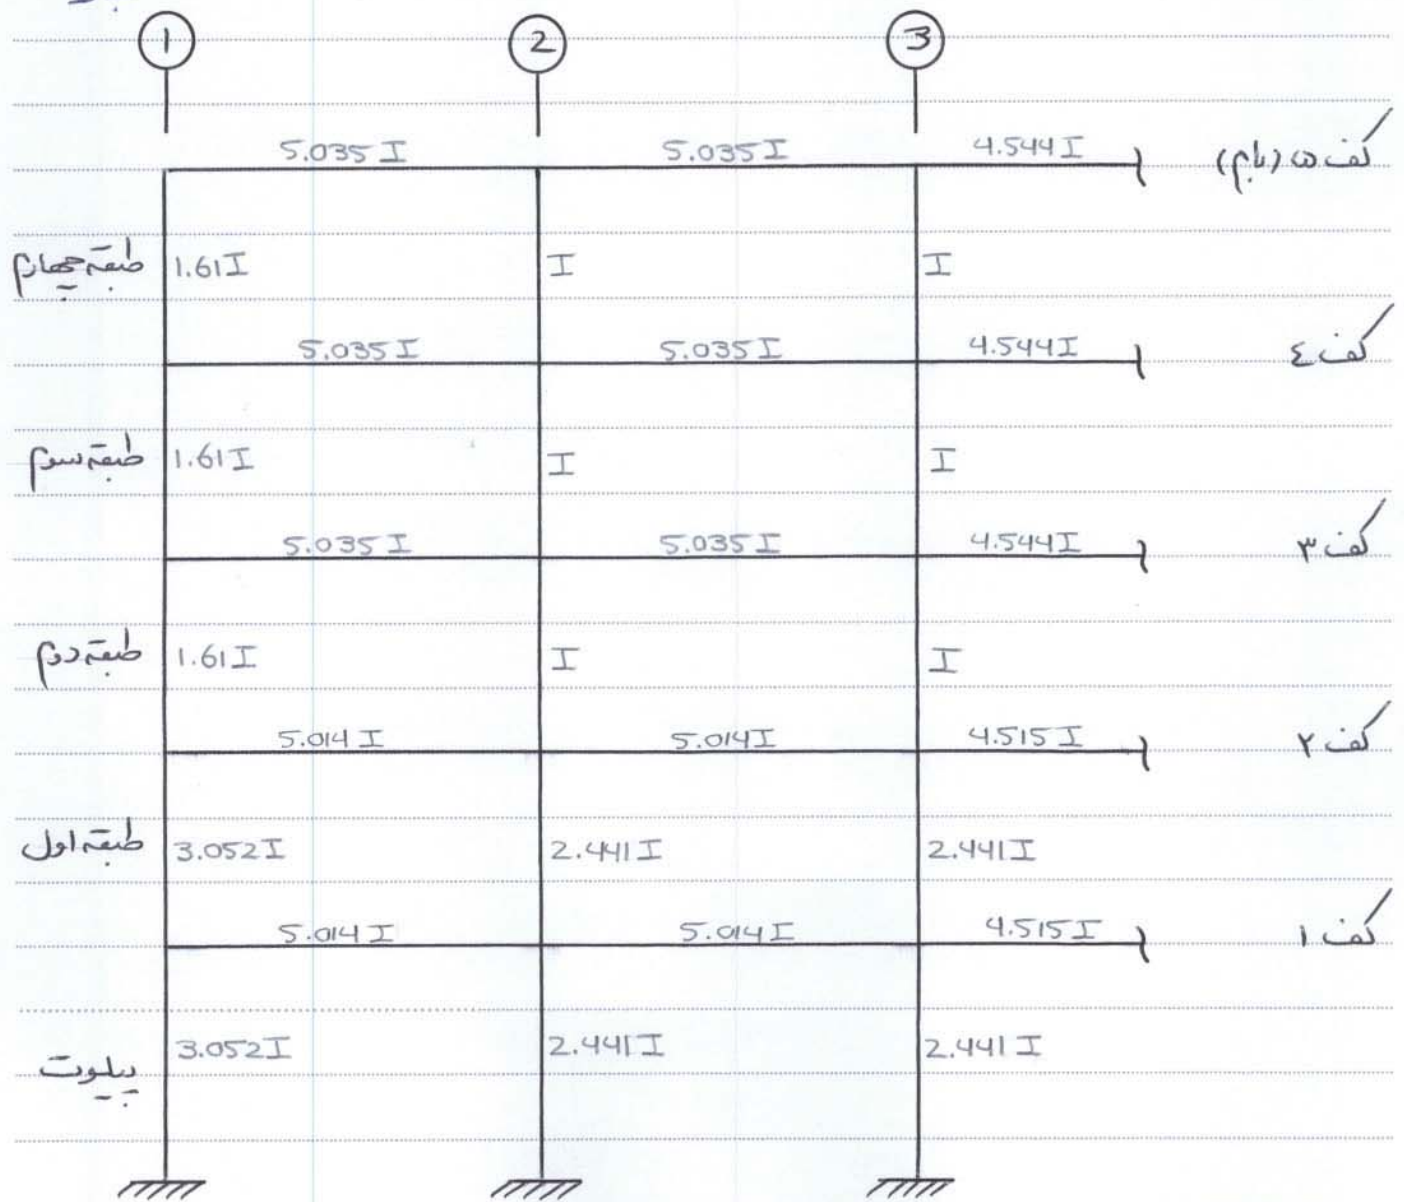 1 2 3
5.035 I 5.035 I 4.544 I کف ۵ (بام)
طبقه چهارم 1.61 I I I
5.035 I 5.035 I 4.544 I کف ٤
طبقه سوم 1.61 I I I
5.035 I 5.035 I 4.544 I کف ۳
طبقه دوم 1.61 I I I
5.014 I 5.014 I 4.515 I کف ۲
طبقه اول 3.052 I 2.441 I 2.441 I
5.014 I 5.014 I 4.515 I کف ۱
پیلوت 3.052 I 2.441 I 2.441 I